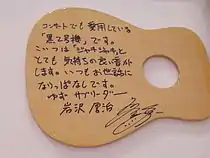 コンサートでも愛用している
「黒2号機」です。
こいつは「ジャキジャキ」と
とても気持ちの良い音が
します。いつもお世話に
なりっぱなしです。
ゆず サブリーダー
岩沢厚治